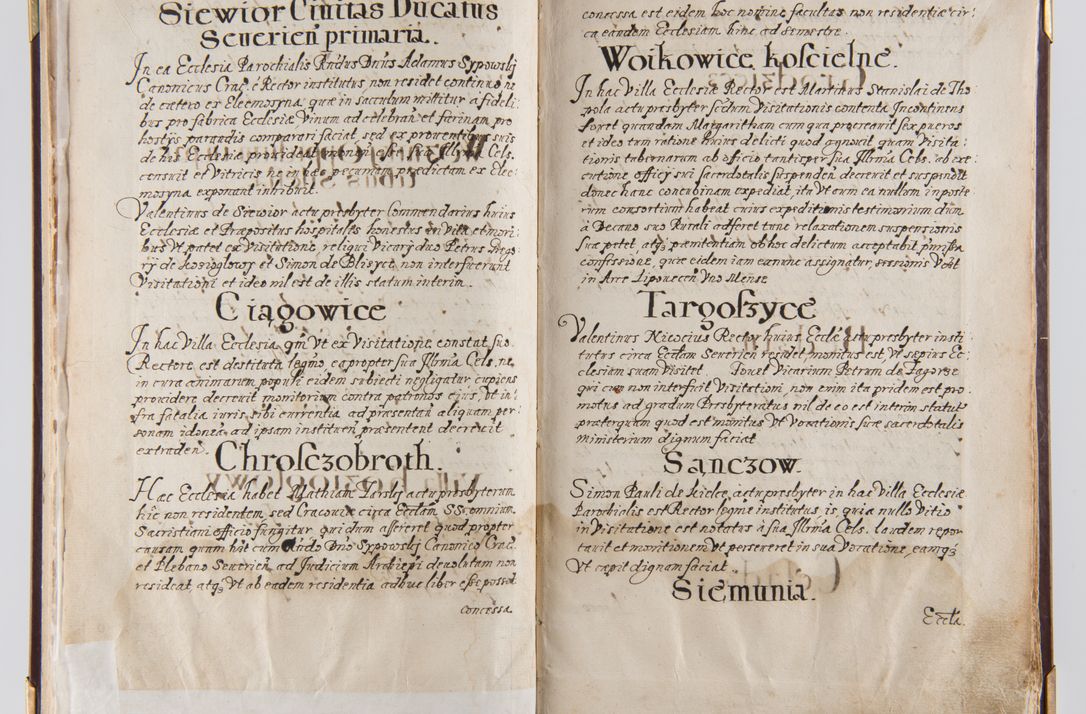 Siewior Civitas Ducatus
Severien primaria.
In ea Ecclesia Parochialis Rndus Dnus Adamus Sypowskj
Canonicus Crac. Rector institutus non residet continuo ne
de cætero ex Eleemosyna quæ in saculum mittitur à fideli
bus pro fabrica Ecclesiæ Vinum ad celebran et farinam pro
hostijs parandis comparari faciat sed ex proventibus suis
de hoc Ecclesiæ provideat monen Illrma Cels.
censuit et Vitricis ne in hac pecuniam prædictam ex Elee
mosyna exponant inhibuit.
Valentinus de Siewior actu presbyter Commendarius huius
Ecclesiæ et Præpositus hospitalis honestus in vita et mori
bus Vt patet ex Visitatione, reliqui Vicarij duo Petrus Grego
rij de Kozieglowy et Simon de Blisyce non interfuerunt
Visitationi et ideo nil est de illis statum interim.
Ciągowice
In hac Villa Ecclesia qm Vt ex Visitatione constat suo
Rectore est destituta legmo, eapropter sua Illrma Cels. ne
in cura animarum populi eidem subiecti negligatur cupiens
providere decrevit monitorium contra patronos ejus, Vt in
fra fatalia iuris sibi currentia ad præsentan aliquam per
sonam idonea ad ipsam instituen præsentent decrevit
extraden.
Chrosczobroth.
Hæc Ecclesia habet Mathiam Jarskj actu presbyterum
hic non residentem sed Cracoviæ circa Ecclam SS. omnium
Sacristiani officio fungitur, qui dum asseret quod propter
causam quam hat cum Rndo Dno Sypowskj Canonico Crac.
et Plebano Severien ad Judicium Archiepi devolutam non
resideat, atq Vt ab eadem residentia adhuc liber esse possit
concessa
concessa est eidem hoc nomine facultas non residentiæ cir
ca eandem Ecclesiam hinc ad semestre.
Woikowice koscielne.
In hac Villa Ecclesiæ Rector est Martinus Stanislai de Tho
pola actu presbyter scdum Visitationis contenta Incontinens
fovet quandam Margaritham cum qua procreavit sex pueros
et ideo tum ratione huius delicti quod agnovit quam Visita
tionis tabernarum ab officio tantisper sua Illrma Cels. ab ex
cutione officij sui sacerdotalis suspenden decrevit et suspendit
donec hanc concubinam expediat, ita Vt cum ea nullum in poste
rum consortium habeat cuius expeditionis testimonium dum
à Decano suo Rurali adferet tunc relaxationem suspensionis
suæ petet atq pænitentiam ob hoc delictum acceptabit, præmissa
confessione, quæ eidem iam ex nunc assignatur, sessionis Vdzt
in Arce Lipovecen Vno Mense
Targoszyce
Valentinus Nicocius Rector huius Ecclæ actu presbyter insti
tutus circa Ecclam Severien residet, monitus est, Vt sepius Ec
clesiam suam Visitet. Fovet Vicarium Petrum de Zagorze
qui cum non interfuit Visitationi, non enim ita pridem est pro
motus ad gradum Presbyteratus nil de eo est interim statut
præterquam quod est monitus Vt Vocationis suæ sacerdotalis
ministerium dignum faciat
Sanczow.
Simon Pauli de Kielce, actu presbyter in hac Villa Ecclesiæ
Parochialis est Rector legme institutus is, quia nullo Vitio
in Visitatione est notatus à sua Illrma Cels. laudem repor
tavit et monitionem Vt perseveret in sua Vocatione, eamq
Vt cæpit dignam faciat.
Siemunia.
Eccla.